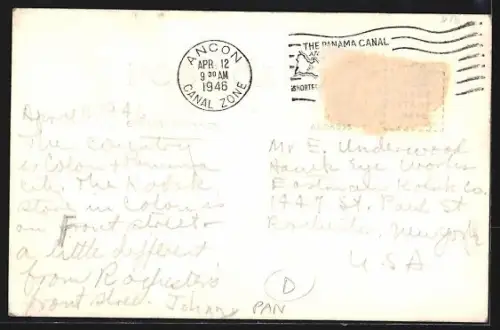 ANCON
APR 12
9 30 AM
1946
CANAL ZONE
THE PANAMA CANAL
The Country
is Colon & Panama
city. The Kodak
store in Colon is
on Front street
a little different
from Rochester's
front stree. Johnny
Mr E. Underwood
Hawk Eye Works
Eastman Kodak Co.
1447 St. Paul St
Rochester, New York
U.S.A
D
PAN